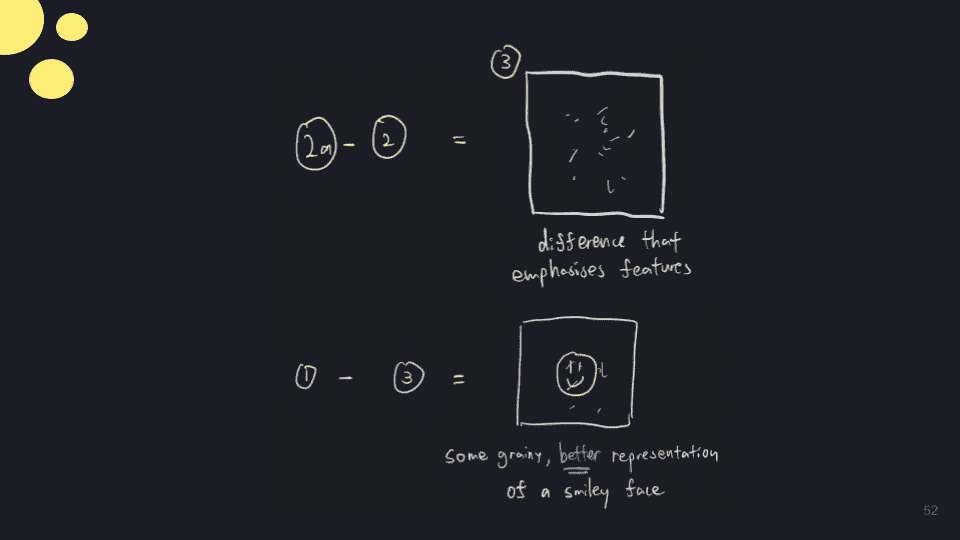 ③
2a - 2 =
difference that
emphasises features
① - ③ =
some grainy, better representation
of a smiley face
52